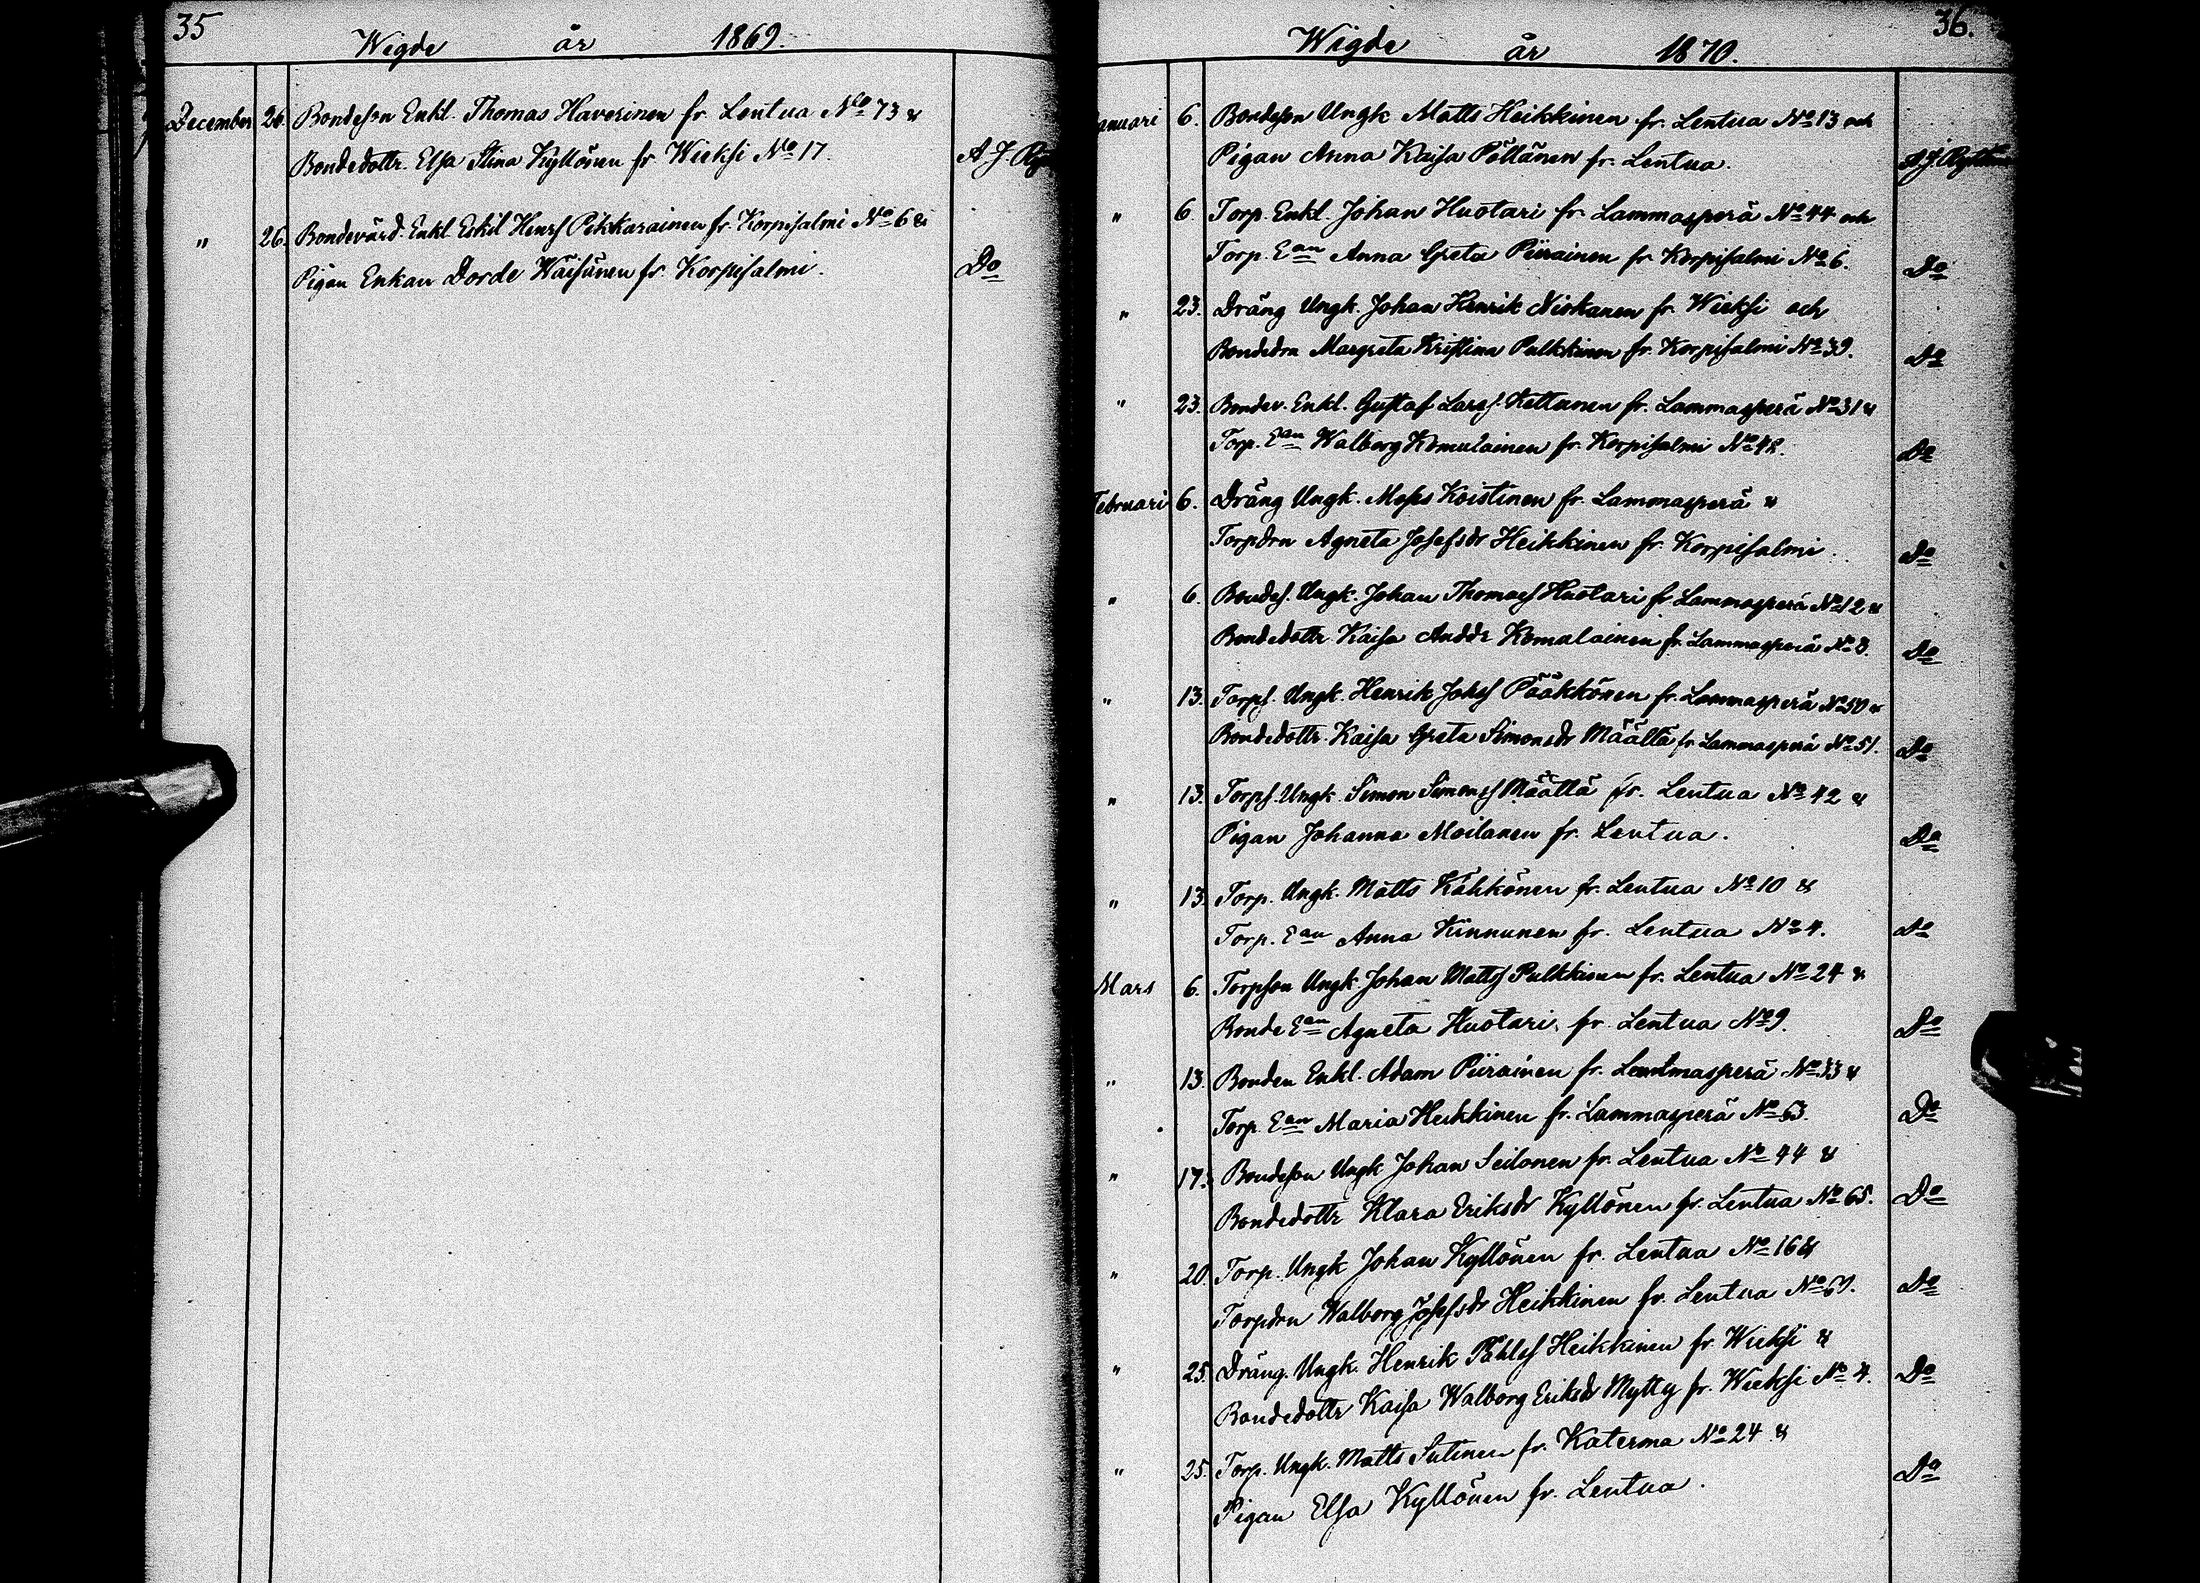 35
Wigde år 1869.
December 26. Bondeson Enkl. Thomas Haverinen fr. Lentua No 73 &
Bondedottr. Elsa Stina Kyllönen fr Wieksi No 17. A J
" 26. Bondevärd. Enkl. Eskil Henrs Pikkarainen fr. Korpisalmi No 6 &
Pigan Enkan Dorde Wäisänen fr. Korpisalmi. Do
36.
Wigde år 1870.
anuari 6. Bondeson Ungk Matts Heikkinen fr. Lentua No 13 och
Pigan Anna Kaisa Pöllänen fr. Lentua.
" 6. Torp. Enkl. Johan Huotari fr. Lammasperä No 44 och
Torp. Ean Anna Greta Piirainen fr Korpisalmi No 6. Do
" 23. Dräng Ungk. Johan Henrik Niskanen fr. Wieksi och
Bondedrn Margreta Kristina Pulkkinen fr. Korpisalmi No 39. Do
" 23. Bondev. Enkl. Gustaf Larss. Kettunen fr. Lammasperä No 31 &
Torp. Ean Walborg Komulainen fr. Korpisalmi No 42. Do
Februari 6. Dräng Ungk. Moses Koistinen fr. Lammasperä &
Torpdrn Agneta Josefsdr Heikkinen fr. Korpisalmi. Do
" 6. Bondes. Ungk. Johan Thomass Huotari fr Lammasperä No 12 &
Bondedottr Kaisa Anddr Komulainen fr. Lammasperä No 3. Do
" 13. Torps. Ungk. Henrik Johss Pääkkönen fr. Lammasperä No 50 &
Bondedottr. Kaisa Greta Simonsdr Määttä fr Lammasperä No 51. Do
" 13. Torps. Ungk. Simon Simonss Määttä fr. Lentua No 42 &
Pigan Johanna Moilanen fr. Lentua. Do
" 13. Torp. Ungk. Matts Kähkönen fr. Lentua No 10 &
Torp. Ean Anna Kinnunen fr. Lentua No 4. Do
Mars 6. Torpson Ungk. Johan Mattss Pulkkinen fr. Lentua No 24 &
Bonde Ean Agneta Huotari fr. Lentua No 9. Do
" 13. Bonden Enkl. Adam Piirainen fr. Lammasperä No 33 &
Torp. Ean Maria Heikkinen fr. Lammasperä No 63. Do
" 17. Bondeson Ungk Johan Seilonen fr. Lentua No 44 &
Bondedottr Klara Eriksdr Kyllönen fr. Lentua No 65. Do
" 20. Torp. Ungk Johan Kyllönen fr. Lentua No 16 &
Torpdrn Walborg Josefsdr Heikkinen fr. Lentua No 69. Do
" 25. Dräng. Ungk. Henrik Påhlss Heikkinen fr. Wieksi &
Bondedottr Kaisa Walborg Eriksdr Mytty fr. Wieksi No 4. Do
" 25. Torp. Ungk. Matts Sutinen fr. Katerma No 24 &
Pigan Elsa Kyllönen fr. Lentua. Do